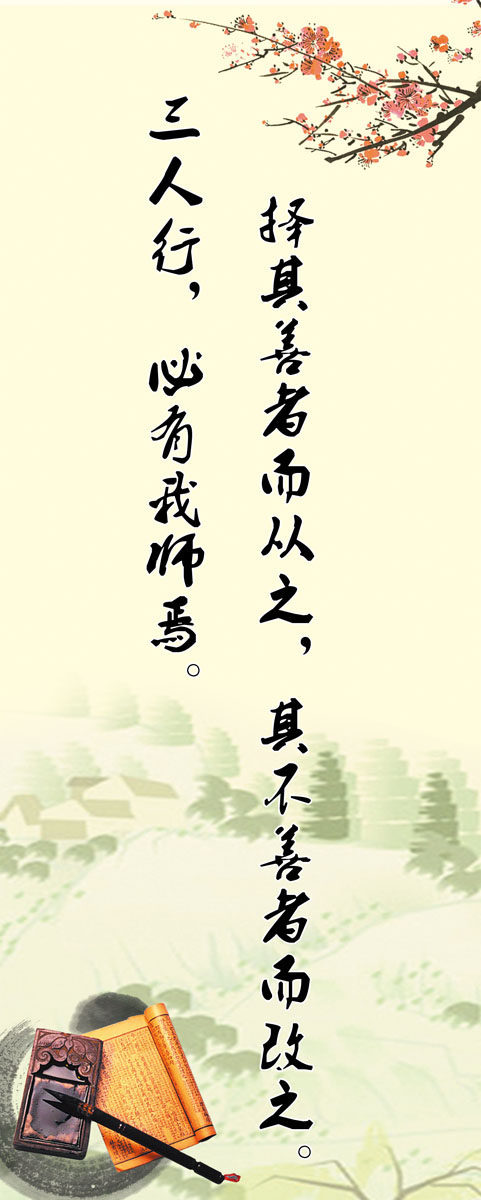 三人行，必有我师焉。
择其善者而从之，其不善者而改之。